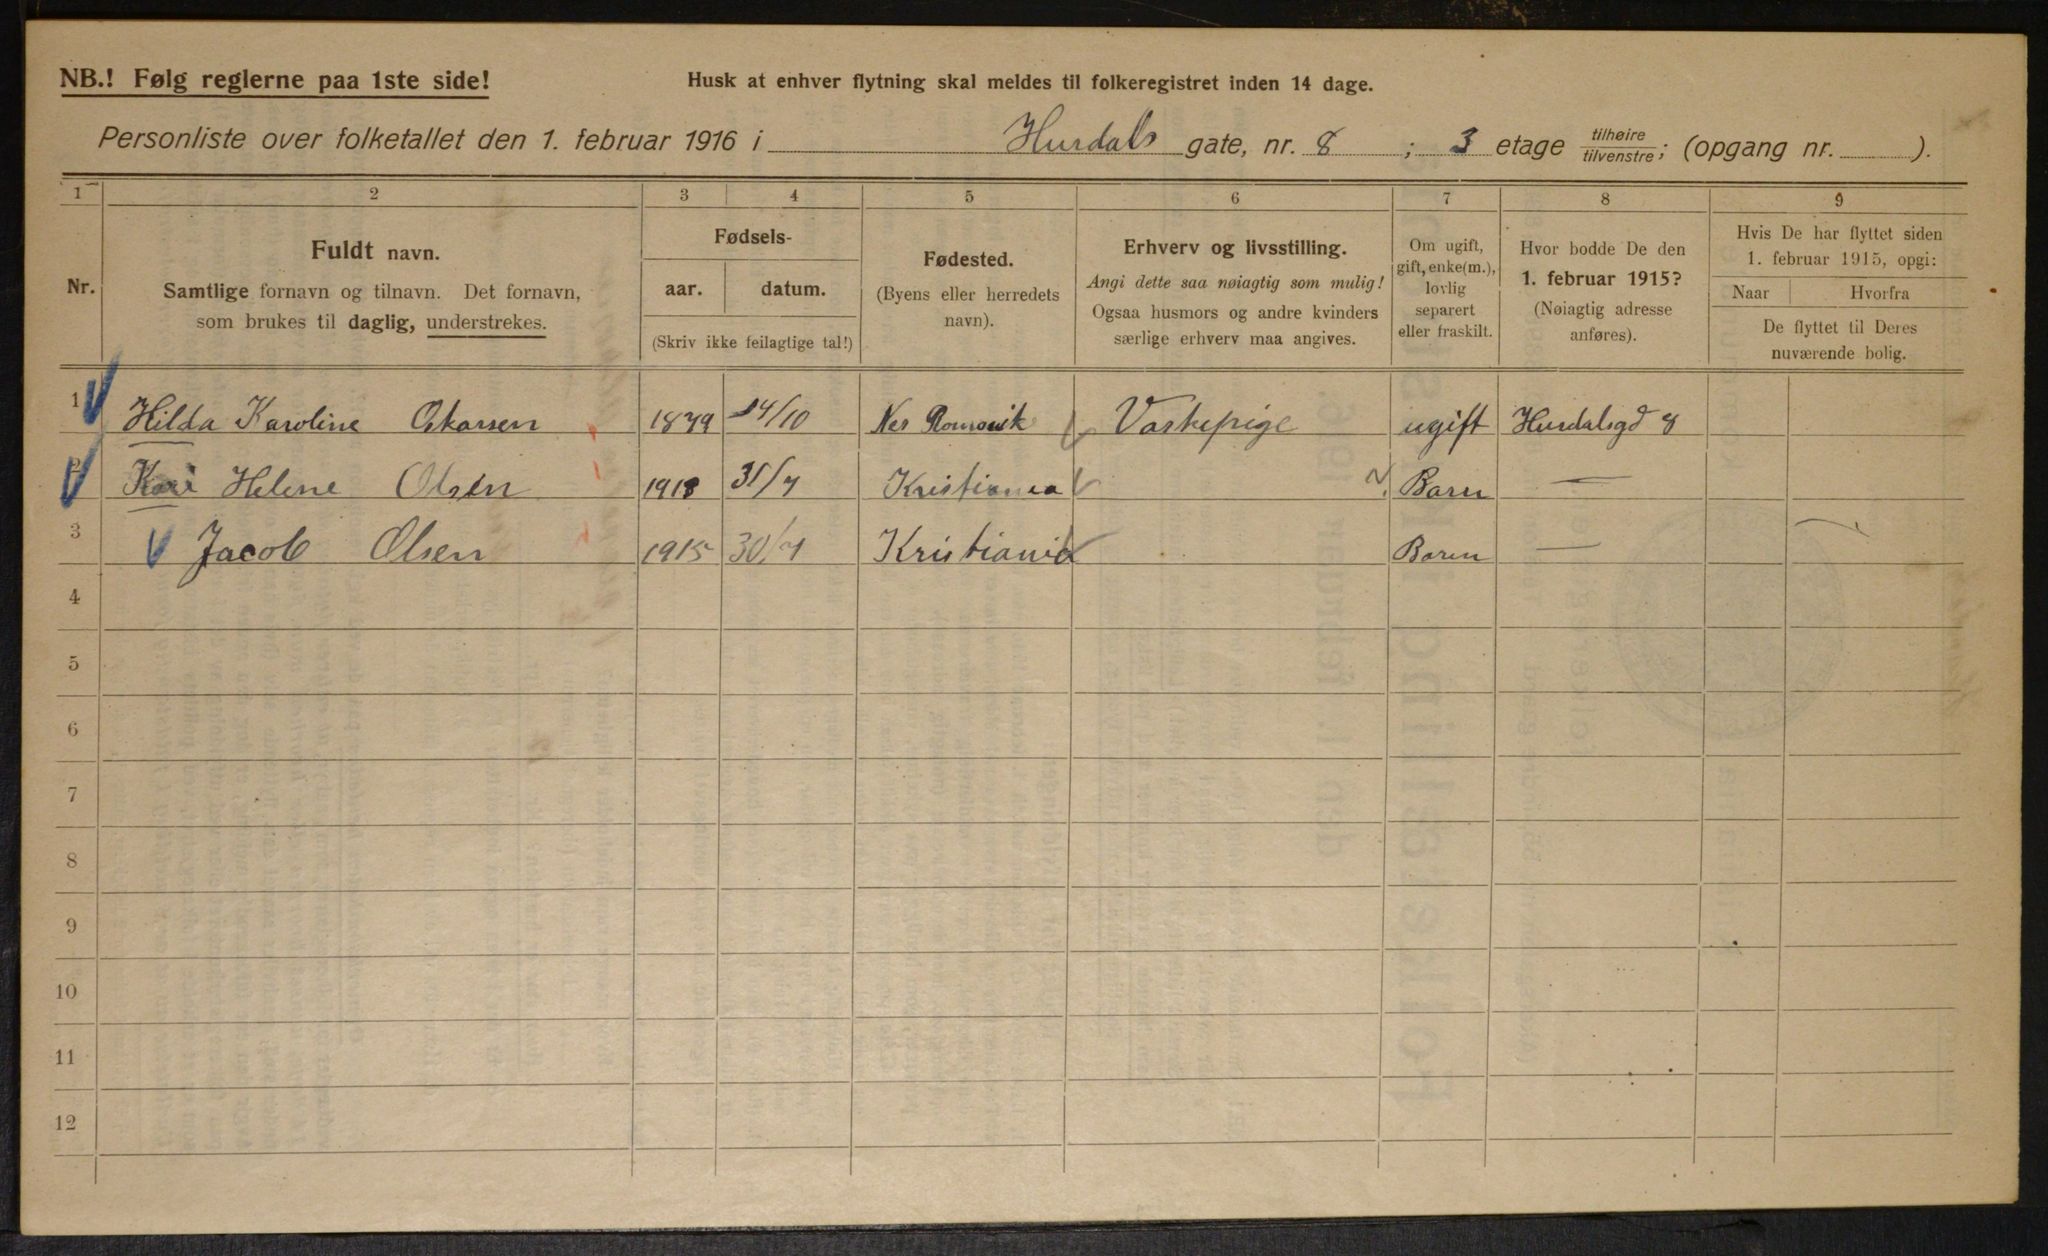 NB.! Følg reglerne paa 1ste side!
Husk at enhver flytning skal meldes til folkeregistret inden 14 dage.
Personliste over folketallet den 1. februar 1916 i Hurdals gate, nr. 8 ; 3 etage tilhøire / tilvenstre ; (opgang nr. ).
1 2 3 4 5 6 7 8 9
Nr.
Fuldt navn.
Samtlige fornavn og tilnavn. Det fornavn,
som brukes til daglig, understrekes.
Fødsels-
aar. datum.
(Skriv ikke feilagtige tal!)
Fødested.
(Byens eller herredets
navn).
Erhverv og livsstilling.
Angi dette saa nøiagtig som mulig!
Ogsaa husmors og andre kvinders
særlige erhverv maa angives.
Om ugift,
gift, enke(m.),
lovlig
separert
eller fraskilt.
Hvor bodde De den
1. februar 1915?
(Nøiagtig adresse
anføres).
Hvis De har flyttet siden
1. februar 1915, opgi:
Naar Hvorfra
De flyttet til Deres
nuværende bolig.
1 Hilda Karoline Oskarsen 1879 14/10 Nes Romerik Vaskepige ugift Hurdalsgd 8
2 Kari Helene Olsen 31/7 Kristiania Barn —
3 Jacob Olsen 1915 30/7 Kristiania Baren —
4
5
6
7
8
9
10
11
12